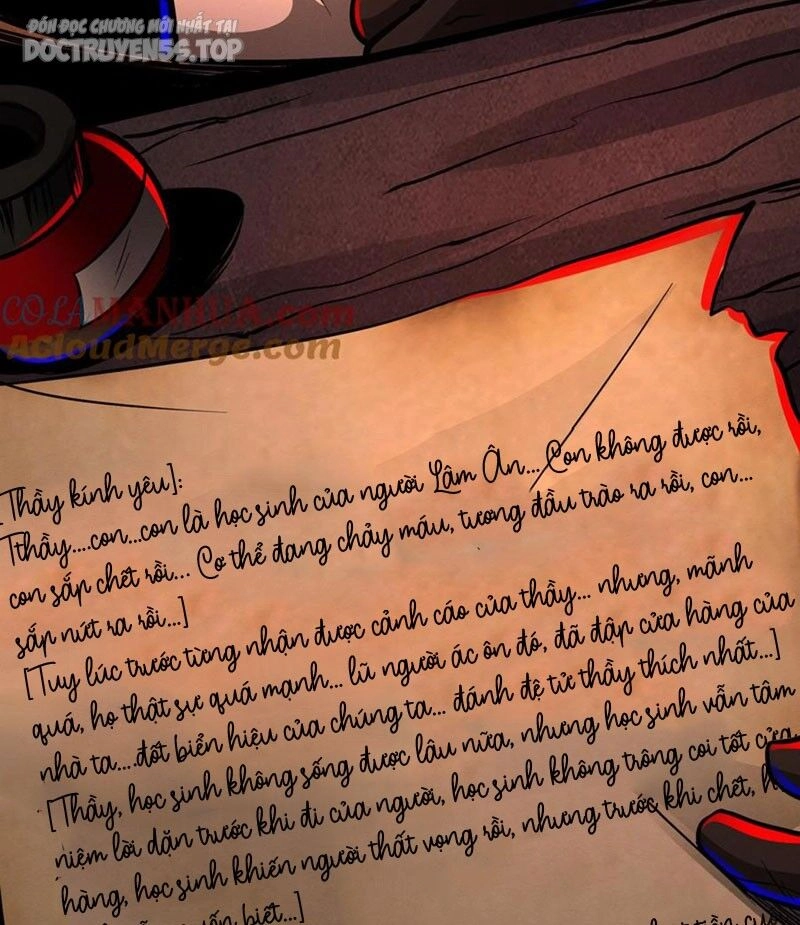 ĐÓN ĐỌC CHƯƠNG MỚI NHẤT TẠI
DOCTRUYEN5S.TOP
COLAMANHUA.com
ACloudMerge.com
[Thầy kính yêu]:
Tthầy....con...con là học sinh của người Lâm Ân... Con không được rồi,
con sắp chết rồi... Cơ thể đang chảy máu, tương đầu trào ra rồi, con...
sắp nứt ra rồi...]
[Tuy lúc trước từng nhận được cảnh cáo của thầy... nhưng, mãnh
quá, họ thật sự quá mạnh... lũ người ác ôn đó, đã đập cửa hàng của
nhà ta....đốt biển hiệu của chúng ta... đánh đệ tử thầy thích nhất...]
[Thầy, học sinh không sống được lâu nữa, nhưng học sinh vẫn tâm
niệm lời dặn trước khi đi của người, học sinh không trông coi tốt cửa
hàng, học sinh khiến người thất vọng rồi, nhưng trước khi chết, h
biết...]